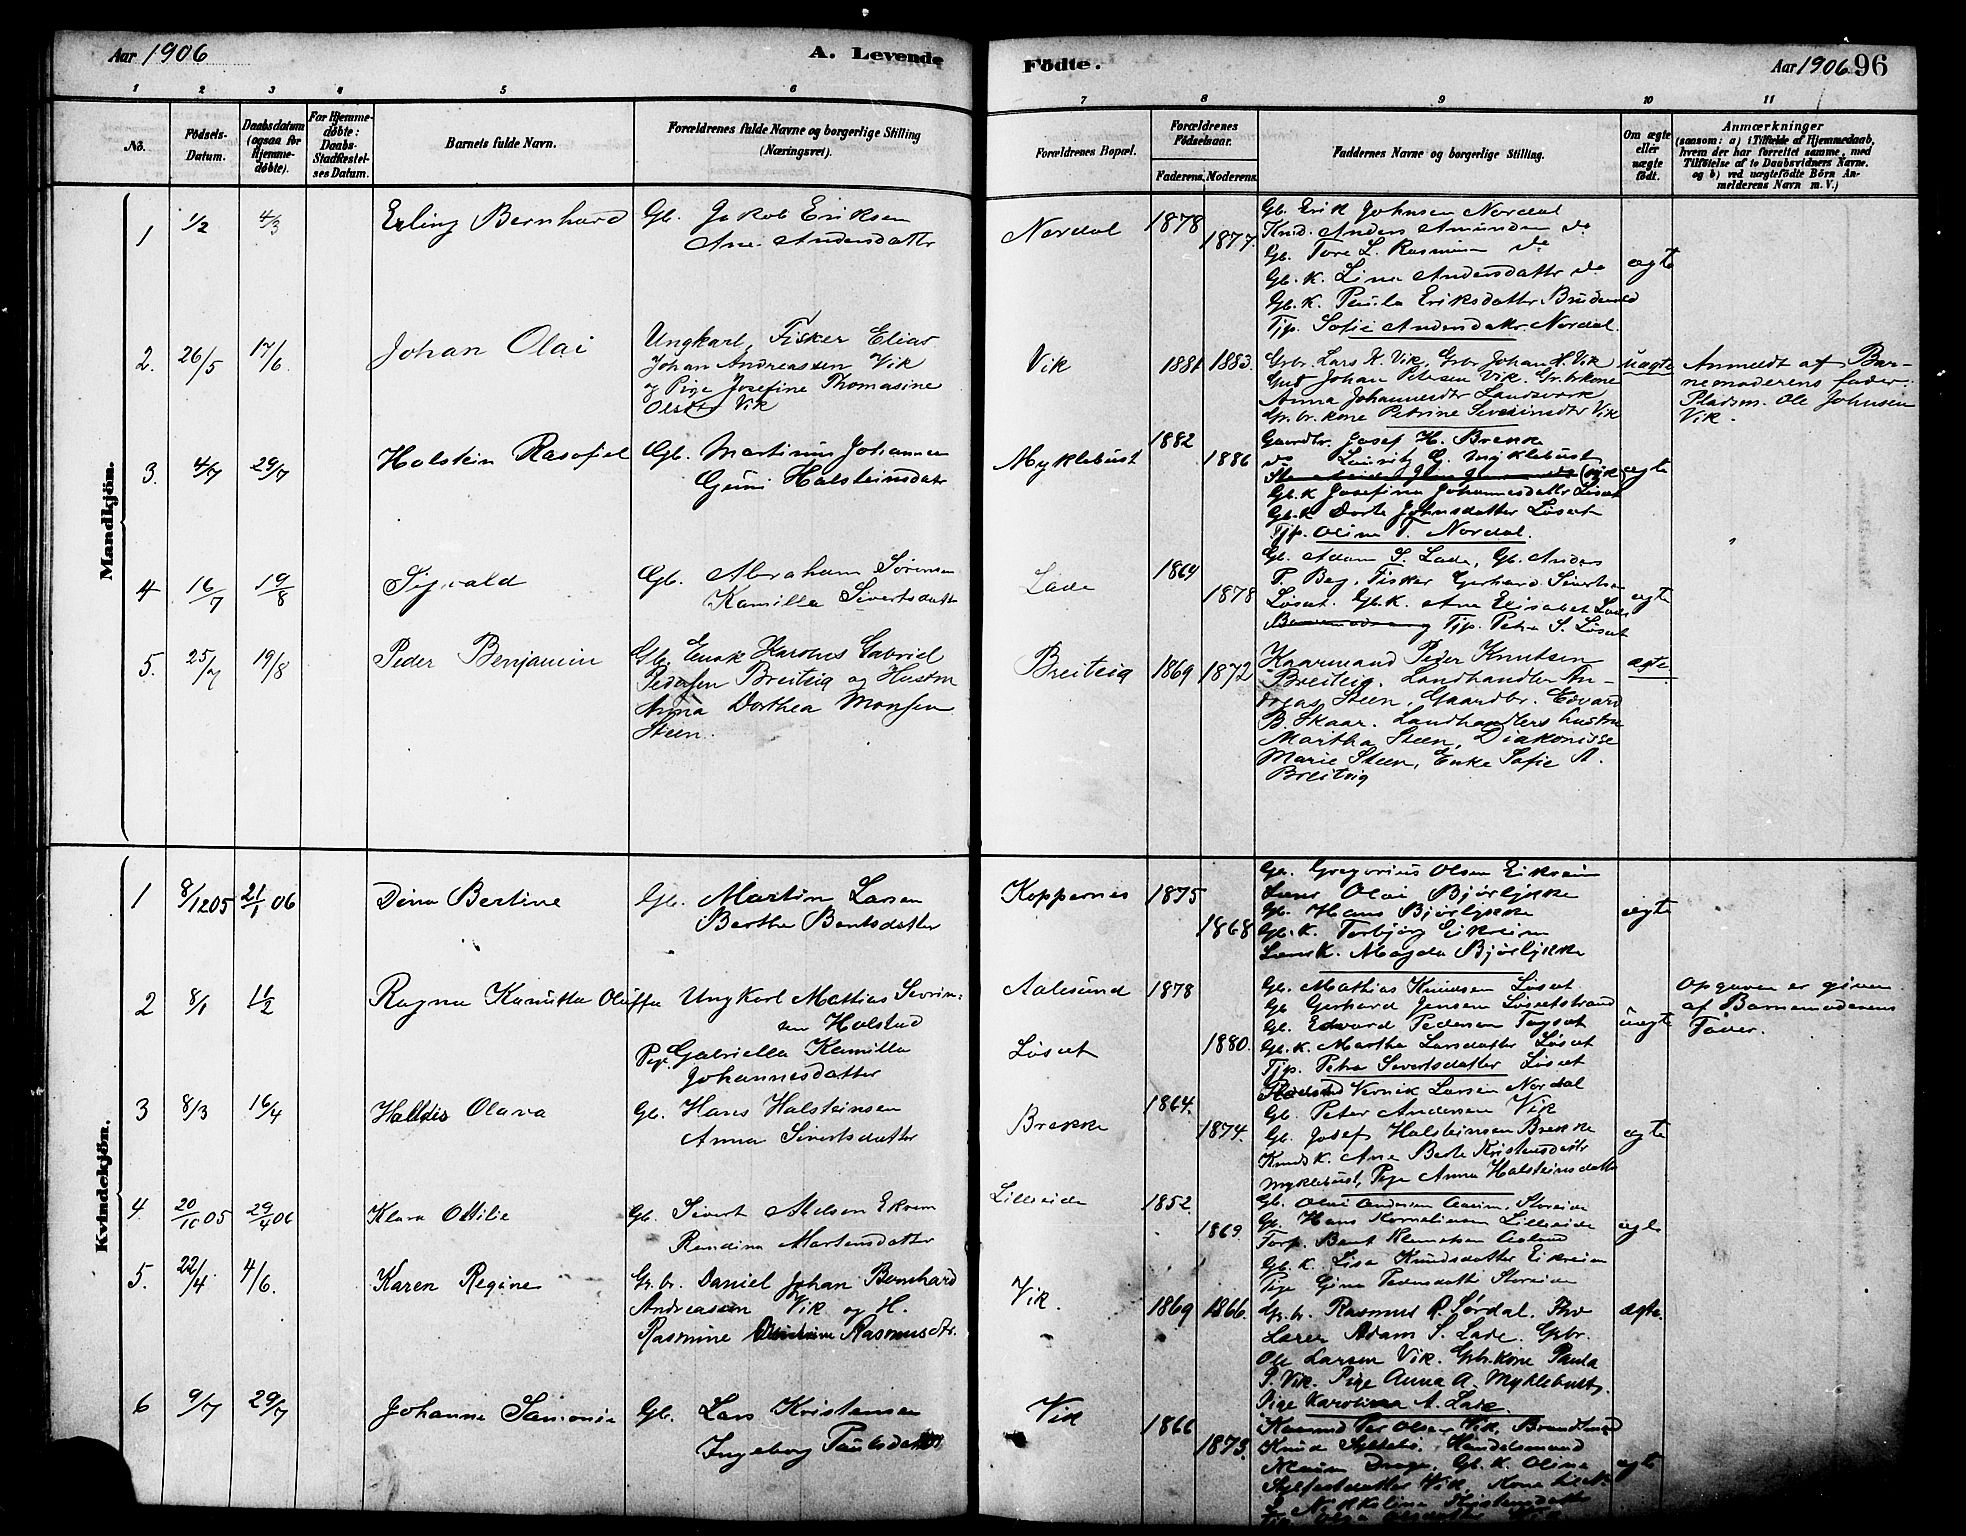 Aar 1906
A. Levende
Födte.
Aar 1906 96
1 2 3 4 5 6 7 8 9 10 11
No.
Födsels-
Datum.
Daabsdatum
(ogsaa for
Hjemme-
döbte).
For Hjemme-
döbte:
Daabs-
Stadfæstel-
ses Datum.
Barnets fulde Navn.
Forældrenes fulde Navne og borgerlige Stilling
(Næringsvei).
Forældrenes Bopæl.
Forældrenes
Födselsaar.
Faderens. Moderens.
Faddernes Navne og borgerlige Stilling.
Om ægte
eller
uægte
födt.
Anmærkninger
(saasom: a) i Tilfælde af Hjemmedaab,
hvem der har forrettet samme, med
Tilföielse af to Daabsvidners Navne,
og b) ved uægtefödte Börn An-
melderens Navn m. V.)
Mandkjön.
1 1/2 4/3 Erling Bernhard
Gb. Jakob Eriksen
Ane Andersdatter
Nordal 1878 1877.
Gb. Erik Johnsen Nordal
Anders Amundsen do
Gb. Tore L. Rasmussen do
Gb. K. Lina Andersdatter do
Gb. K. Paula Eriksdatter
Tjp. Sofie Andersdatter Nordal.
ægte
2. 26/5 17/6 Johan Olai
Ungkarl, Fisker Elias
Johan Andreassen Vik
og Pige Josefine Thomasine
Olsdtr Vik
Vik 1881 1883.
Grbr. Lars K. Vik, Grbr Johan H. Vik
Johan Petersen Vik. Gr.br.kone
Anna Johannesdtr
Gr.br.kone Petrine Severinsdtr Vik
uægte
Anmeldt af Bar-
nemoderens fader
Pladsm. Ole Johnsen
Vik.
3. 4/7 29/7 Holstein Rasofiel
Gb. Martinus Johannesen
Halsteinsdatter
Myklebust 1882 1886
Gaardbr. Josef H. Brekke
do Lauritz G. Myklebust
Gb. K Josefina Johannesdatter Løset
Gb. K Dorte Johnsdatter Løset
Tjp. Olina T. Nordal.
ægte
4 16/7 19/8 Sigvald
Gb. Abraham Sørensen
Kamilla Sivertsdatter
Lade 1864 1878
Gb. Adam S. Lade, Gb. Anders
P. Bag, Fisker Gerhard Sivertsen
Løset. Gb. K. Ane Elisabet Lade
Tjp. Petra S. Løset
ægte
5. 25/7 19/8 Peder Benjamin
Gb. Enok Gabriel
Pedersen Breiteig og Hustru
Anna Dorthea Monsen
Steen.
Breiteig 1869 1872
Kaarmand Peder Knutsen
Breiteig. Landhandler An-
dreas Steen, Gaardbr. Edvard
B. Skaar. Landhandlers hustru
Martha Steen, Diakonisse
Marie Steen, Enke Sofie A.
Breiteig
ægte.
Kvindekjön.
1 8/12 05 21/1 06 Dina Bertine
Gb. Martin Larsen
Berthe Bentsdatter
Koppernes 1875 1868
Gb. Gregorius Olsen Eikrem
Olai Bjørlykke
Gb. Hans Bjørlykke
Gb. K. Torbjørg Eikrem
Magda Bjørlykke
ægte
2 8/1 11/2 Ragna Kamilla Oluffa
Ungkarl Mathias Sevrin-
sen Holstad
Pige Gabriella Kamilla
Johannesdatter
Aalesund 1878
Løset 1880.
Gb. Mathias Knudsen Løset
Gb Gerhard Jensen Løsetstrand
Gb. Edvard Pedersen
Gb. K. Martha Larsdatter Løset
Tjp. Petra Sivertsdatter Løset
uægte
Opgaven er given
af Barnemoderens
Fader.
3 8/3 16/4 Halldis Olava
Gb. Hans Halsteinsen
Anna Sivertsdatter
Brekke 1864. 1874.
Larsen Nordal
Gb. Peter Andersen Vik
Gb. Josef Halsteinsen Brekke
Ane Berte Kristensdatter
Myklebust, Pige Anna Halsteinsdatter
ægte
4. 20/10 05 29/4 06 Klara Otilie
Gb. Sivert
Randina Martensdatter
Lilleeide 1852. 1869.
Gb. Olai Andersen Storeide
Gb. Hans Korneliussen Lilleeide
Gb. K. Lisa Knudsdatter Eikrem
Pige Gina Pedersdatter Storeide
ægte
5. 22/4 4/6. Karen Regine
Gr.br. Daniel Johan Bernhard
Andreassen Vik og H.
Rasmine Rasmusdtr.
Vik. 1869 1866.
Gr.br. Rasmus R. Sørdal.
Lærer Adam S. Lade. Grbr.
Ole Larsen Vik. Grbr.kone Paula
P. Vik. Pige Anna A. Myklebust,
Pige Karolina A. Lade.
ægte.
6 9/7 29/7 Johanne
Gb. Lars Kristensen
Ingeborg Paulsdatter
Vik 1866 1873.
Per Olsen Vik,
Knud Handelsmand
Gb. K. Olina
Vik,
Kristensdatter
ægte